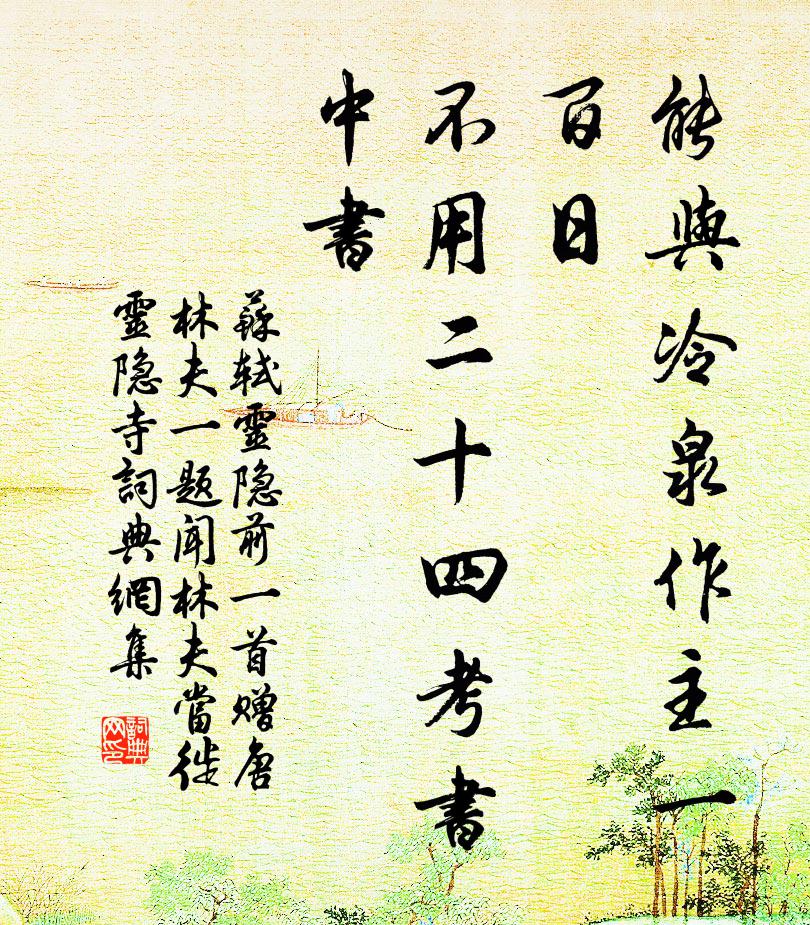 能與冷泉作主一
百日
不用二十四考書
中書
蘇軾靈隐前一首赠唐
林夫一题闻林夫當徙
靈隐寺詞典網集
詞典
网印